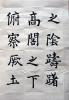 之陰躊躇
高閣之下
俯察厥土